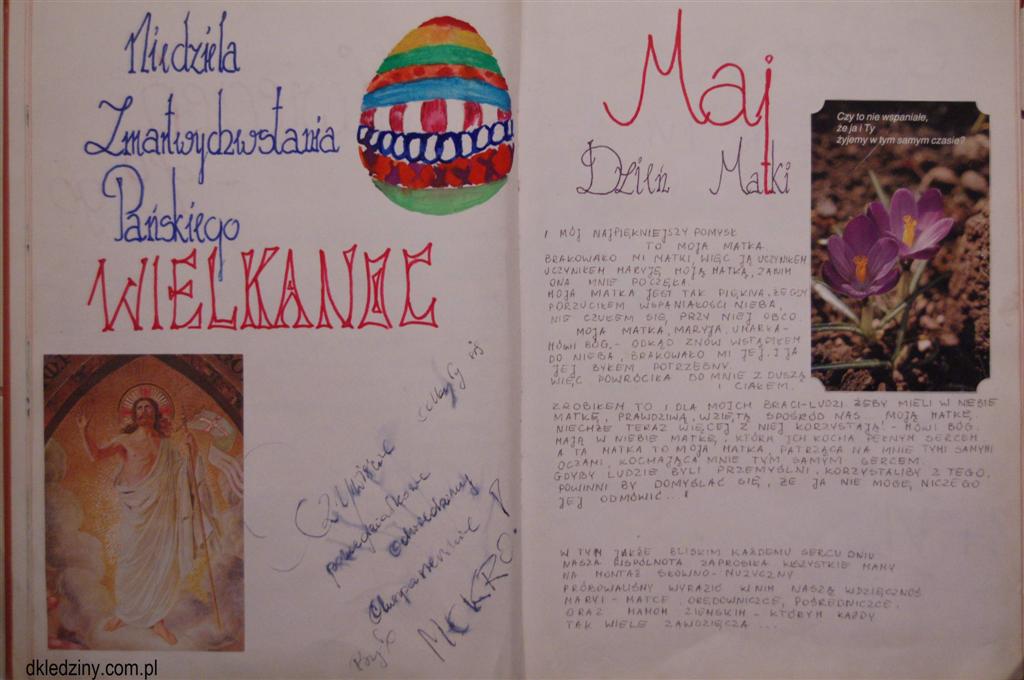 Niedziela
Zmartwychwstania
Pańskiego
WIELKANOC
Oczywiście
poniedziałkowe
odwiedziny
MOKRO!
Maj
Dzień Matki
Czy to nie wspaniałe,
że ja i Ty
żyjemy w tym samym czasie?
I MÓJ NAJPIĘKNIEJSZY POMYSŁ
TO MOJA MATKA.
BRAKOWAŁO MI MATKI, WIĘC JĄ UCZYNIŁEM
UCZYNIŁEM MARYJĘ MOJĄ MATKĄ, ZANIM
ONA MNIE POCZĘŁA.
MOJA MATKA JEST TAK PIĘKNA, ŻE GDY
PORZUCIŁEM WSPANIAŁOŚCI NIEBA,
NIE CZUŁEM SIĘ PRZY NIEJ OBCO.
MOJA MATKA, MARYJA, UMARŁA -
MÓWI BÓG. - ODKĄD ZNÓW WSTĄPIŁEM
DO NIEBA, BRAKOWAŁO MI JEJ. I JA
JEJ BYŁEM POTRZEBNY.
WIĘC POWRÓCIŁA DO MNIE Z DUSZĄ
I CIAŁEM.
ZROBIŁEM TO I DLA MOICH BRACI-LUDZI ŻEBY MIELI W NIEBIE
MATKĘ, PRAWDZIWĄ, WZIĘTĄ SPOŚRÓD NAS... MOJĄ MATKĘ.
NIECHŻE TERAZ WIĘCEJ Z NIEJ KORZYSTAJĄ! - MÓWI BÓG.
MAJĄ W NIEBIE MATKĘ, KTÓRA ICH KOCHA PEŁNYM SERCEM
A TA MATKA TO MOJA MATKA, PATRZĄCA NA MNIE TYMI SAMYMI
OCZAMI, KOCHAJĄCA MNIE TYM SAMYM SERCEM.
GDYBY LUDZIE BYLI PRZEMYŚLNI, KORZYSTALIBY Z TEGO,
POWINNI BY DOMYŚLAĆ SIĘ, ŻE JA NIE MOGĘ NICZEGO
JEJ ODMÓWIĆ...!
W TYM JAKŻE BLISKIM KAŻDEMU SERCU DNIU
NASZA WSPÓLNOTA ZAPROSIŁA WSZYSTKIE MAMY
NA MONTAŻ SŁOWNO-MUZYCZNY
PRÓBOWALIŚMY WYRAZIĆ W NIM NASZĄ WDZIĘCZNOŚ
MARYI - MATCE, ORĘDOWNICZCE, POŚREDNICZCE
ORAZ MAMOM ZIEMSKIM - KTÓRYM KAŻDY
TAK WIELE ZAWDZIĘCZA...
dkledziny.com.pl